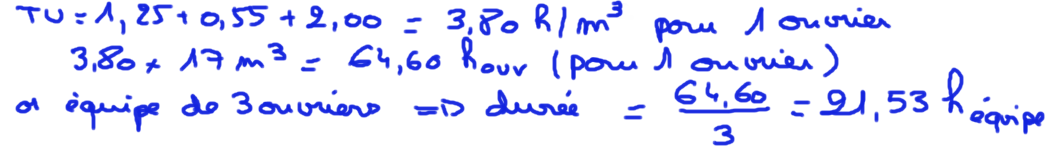 TU = 1,25 + 0,55 + 2,00 = 3,80 h/m³ pour 1 ouvrier
3,80 × 17 m³ = 64,60 houv (pour 1 ouvrier)
équipe de 3 ouvriers => durée = 64,60/3 = 21,53 h équipe